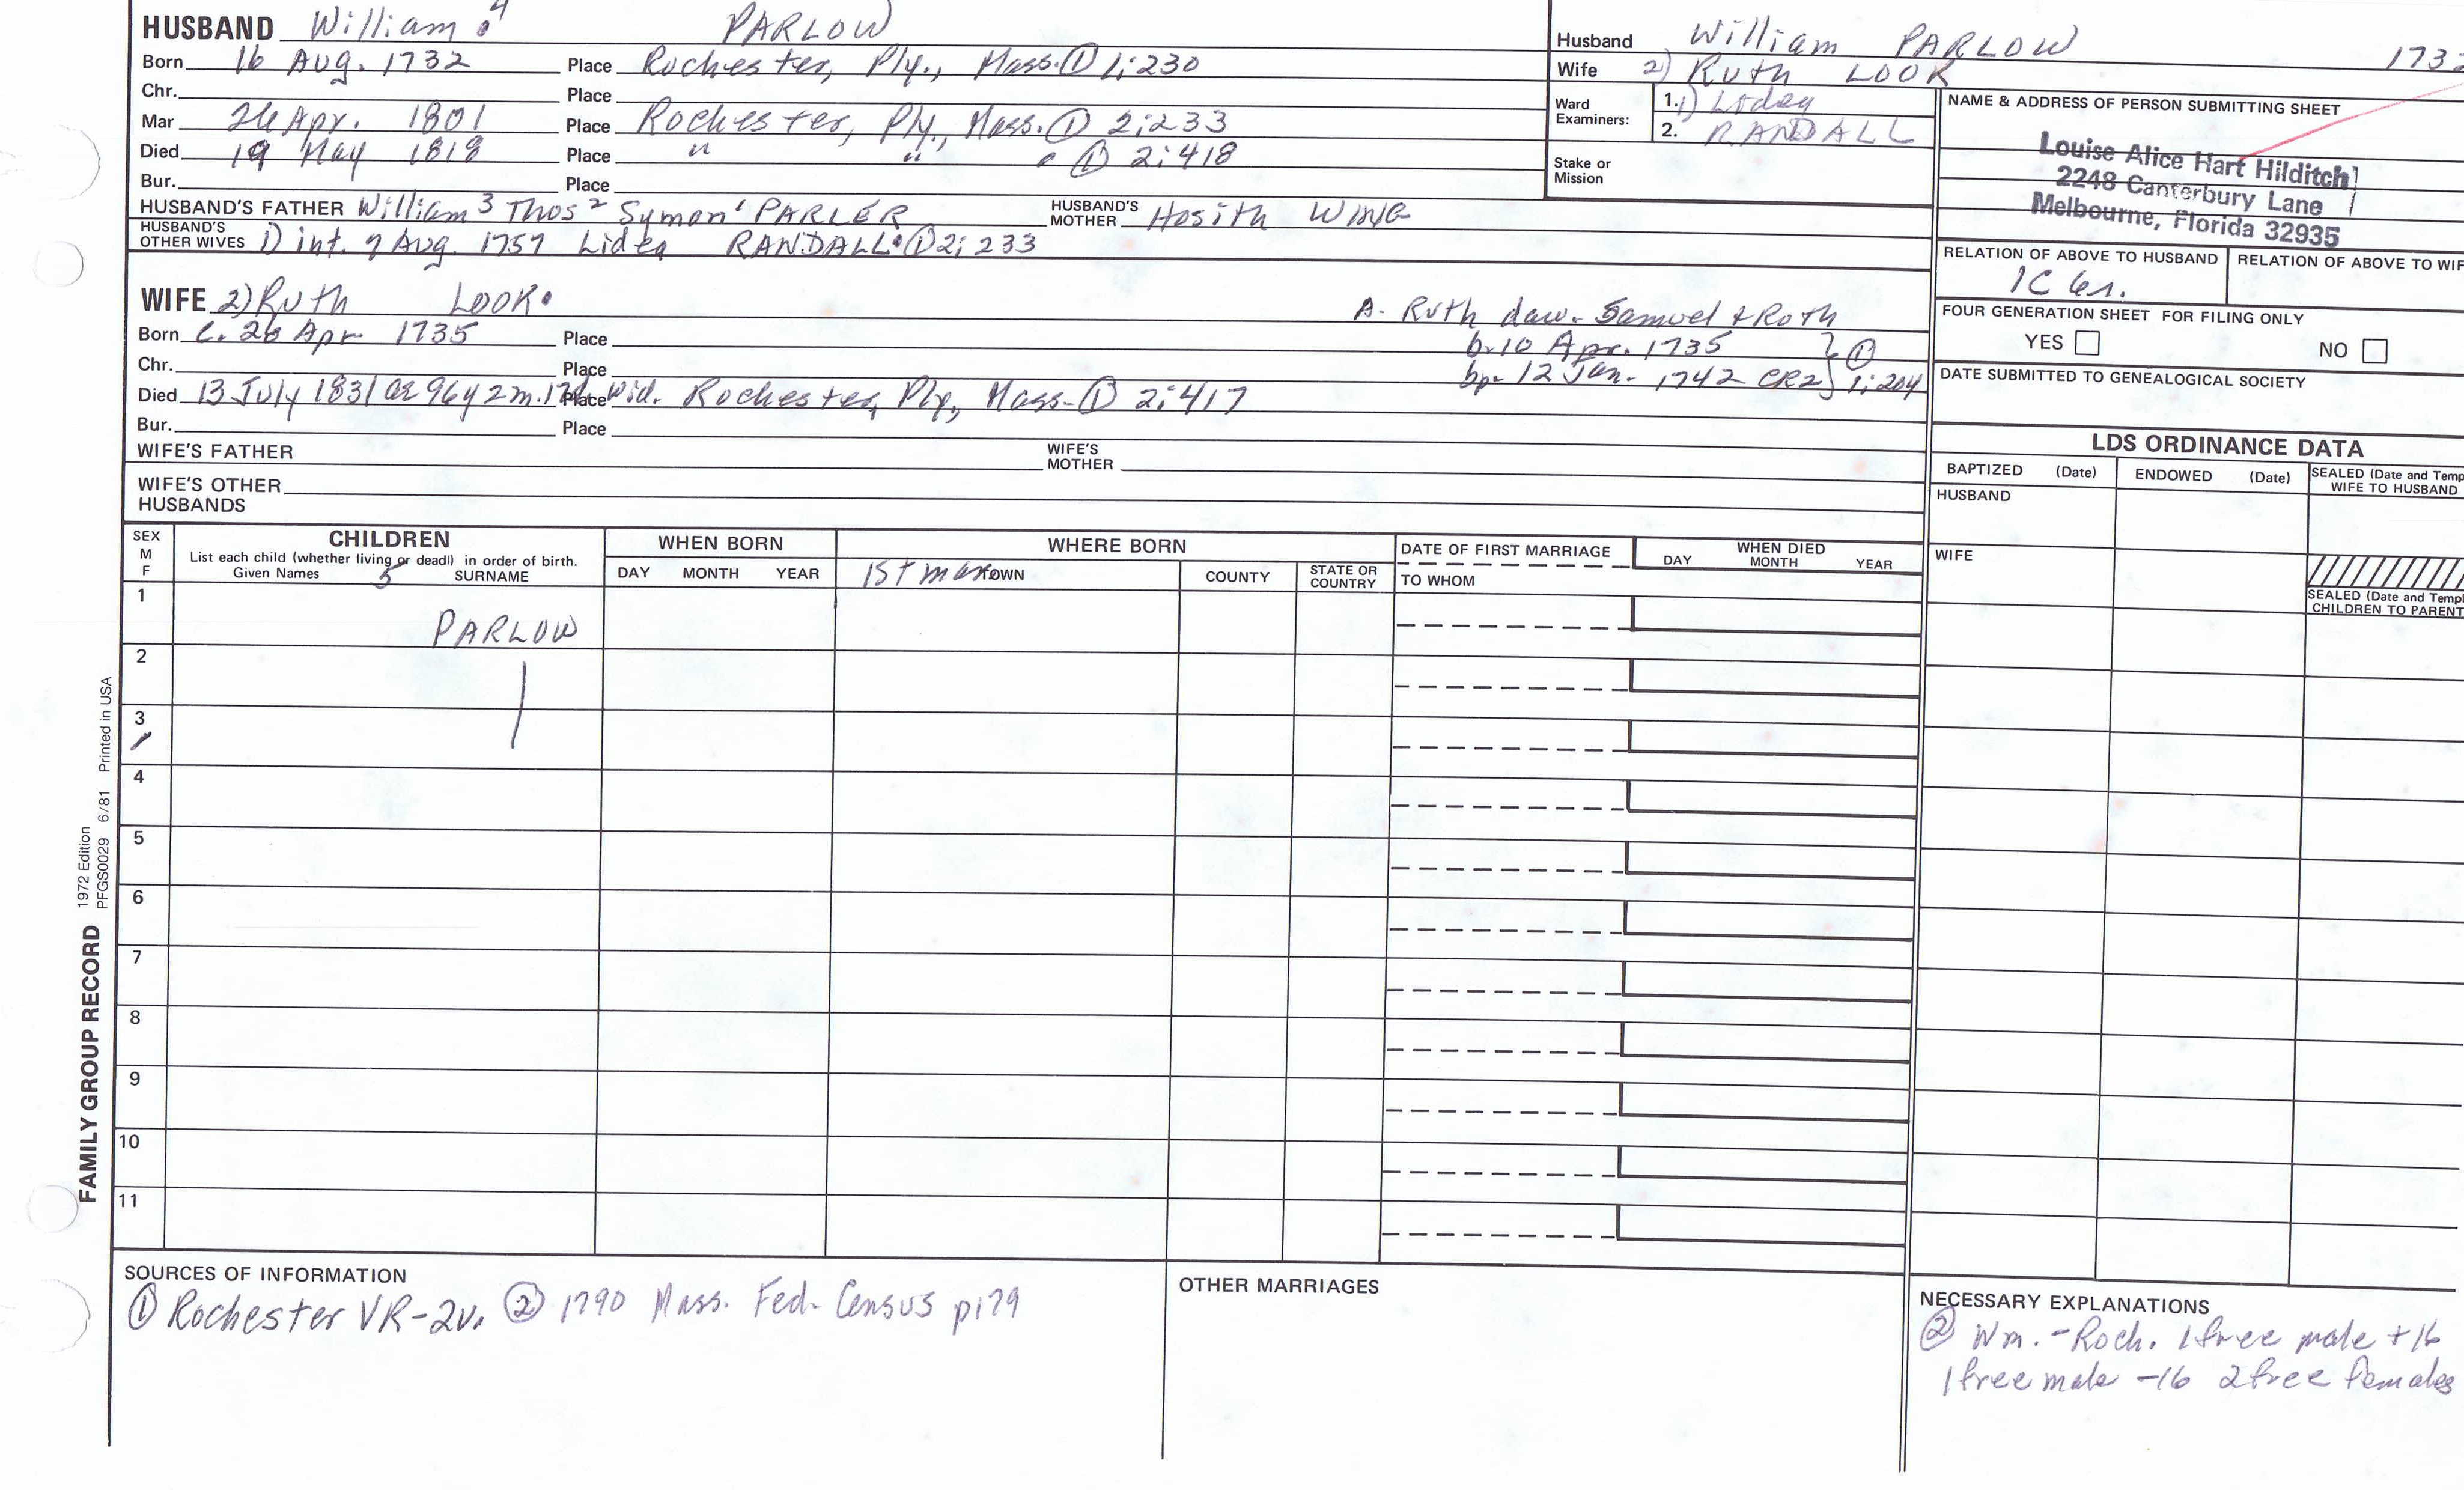 HUSBAND William 4 PARLOW
Born 16 Aug. 1732 Place Rochester, Ply., Mass. ① 1:230
Chr. Place
Mar 26 Apr. 1801 Place Rochester, Ply., Mass. ① 2:233
Died 19 May 1818 Place " " " ① 2:418
Bur. Place
HUSBAND'S FATHER William 3 Thos 2 Symon 1 PARLER HUSBAND'S MOTHER Hosith WING
HUSBAND'S OTHER WIVES 1) int. 7 Aug. 1757 Lidea RANDALL. ① 2:233
WIFE 2) Ruth LOOK.
Born c. 26 Apr 1735 Place
Chr. Place
Died 13 July 1831 ae 96y 2m. 17d. Place Wid. Rochester, Ply, Mass. ① 2:417
Bur. Place
A. Ruth daw. Samuel & Ruth
b. 10 Apr. 1735 } ①
bp. 12 Jan. 1742 CR2 } 1:204
WIFE'S FATHER WIFE'S MOTHER
WIFE'S OTHER HUSBANDS
Husband William PARLOW 173
Wife 2) Ruth LOOK
Ward Examiners: 1. 1) Lidea
2. RANDALL
Stake or Mission
NAME & ADDRESS OF PERSON SUBMITTING SHEET
Louise Alice Hart Hilditch
2248 Canterbury Lane
Melbourne, Florida 32935
RELATION OF ABOVE TO HUSBAND RELATION OF ABOVE TO WIF
1C 6r.
FOUR GENERATION SHEET FOR FILING ONLY
YES NO
DATE SUBMITTED TO GENEALOGICAL SOCIETY
LDS ORDINANCE DATA
BAPTIZED (Date) ENDOWED (Date) SEALED (Date and Temp
WIFE TO HUSBAND
HUSBAND
WIFE
SEALED (Date and Templ
CHILDREN TO PARENT
SEX M F
CHILDREN
List each child (whether living or dead) in order of birth.
Given Names 5 SURNAME
WHEN BORN
DAY MONTH YEAR
WHERE BORN
1st mar TOWN COUNTY STATE OR COUNTRY
DATE OF FIRST MARRIAGE
TO WHOM
WHEN DIED
DAY MONTH YEAR
1 PARLOW
2
3
4
5
6
7
8
9
10
11
FAMILY GROUP RECORD 1972 Edition
PFGS0029 6/81 Printed in USA
SOURCES OF INFORMATION
① Rochester VR-2v. ② 1790 Mass. Fed. Census p179
OTHER MARRIAGES
NECESSARY EXPLANATIONS
② Wm. - Roch. 1 free male +16
1 free male -16 2 free females